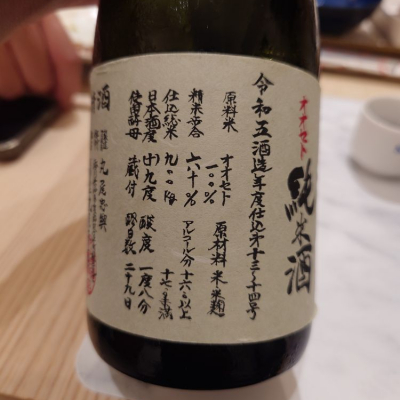 オオセト
純米酒
令和五酒造年度仕込み第十三〜十四号
原料米 オオセト一〇〇% 原材料 米 米麹
精米歩合 六十% アルコール分 十六・〇以上十七・〇未満
仕込総米 九〇〇kg
日本酒度 (+)九度 酸度 一度八分
使用酵母 蔵付 醪日数 二十九日
酒